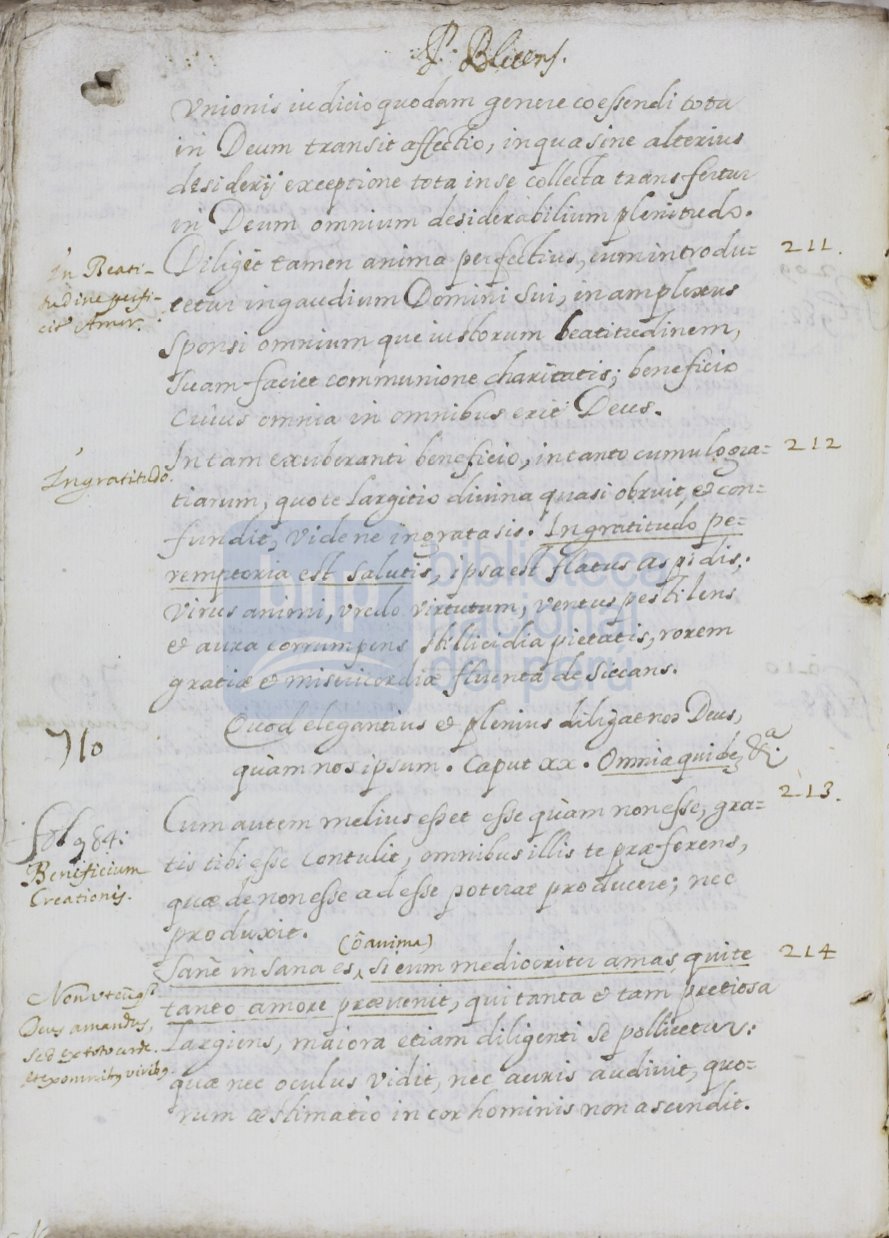 P. Blesens.
Vnionis iudicio quodam genere coessendi tota
in Deum transit affectio, in qua sine alterius
desiderij exceptione tota in se collecta transfertur
in Deum omnium desiderabilium plenitudo.
In Beati-
tudine perfi-
cit Amor.
Diliget tamen anima perfectius, cum introdu-
211.
cetur in gaudium Domini Sui, in amplexus
Sponsi omnium que iustorum beatitudinem,
suam faciet communione charitatis; beneficio
Cuius omnia in omnibus erit Deus.
Ingratitudo.
In tam exuberanti beneficio, in tanto cumulo gra-
212
tiarum, quo te largitio divina quasi obruit, et con-
fundit, vide ne ingrata sis. Ingratitudo pe-
remptoria est salutis, ipsa est flatus aspidis,
virus animi, vredo virtutum, ventus pestilens
et aura corrumpens stillicidia pietatis, rorem
gratiæ et misericordiæ fluenta desiccans.
Quod elegantius et plenius diligat nos Deus,
quàm nos ipsum. Caput xx. Omnia quidē, &a.
fol 984.
Beneficium
Creationis.
Cum autem melius esset esse quàm non esse, gra-
213.
tis tibi esse contulit, omnibus illis te præferens,
quæ de non esse ad esse poterat producere; nec
produxit.
(ô anima)
Sanè insana es, si eum mediocriter amas, qui te
214
Deus amandus,
sed ex toto corde.
et ex omnibus viribus.
tanto amore prævenit, qui tanta et tam pretiosa
largiens, maiora etiam diligenti se pollicetur:
quæ nec oculus vidit, nec auris audivit, quo-
rum æstimatio in cor hominis non ascendit.
bnp
biblioteca
nacional
del perú